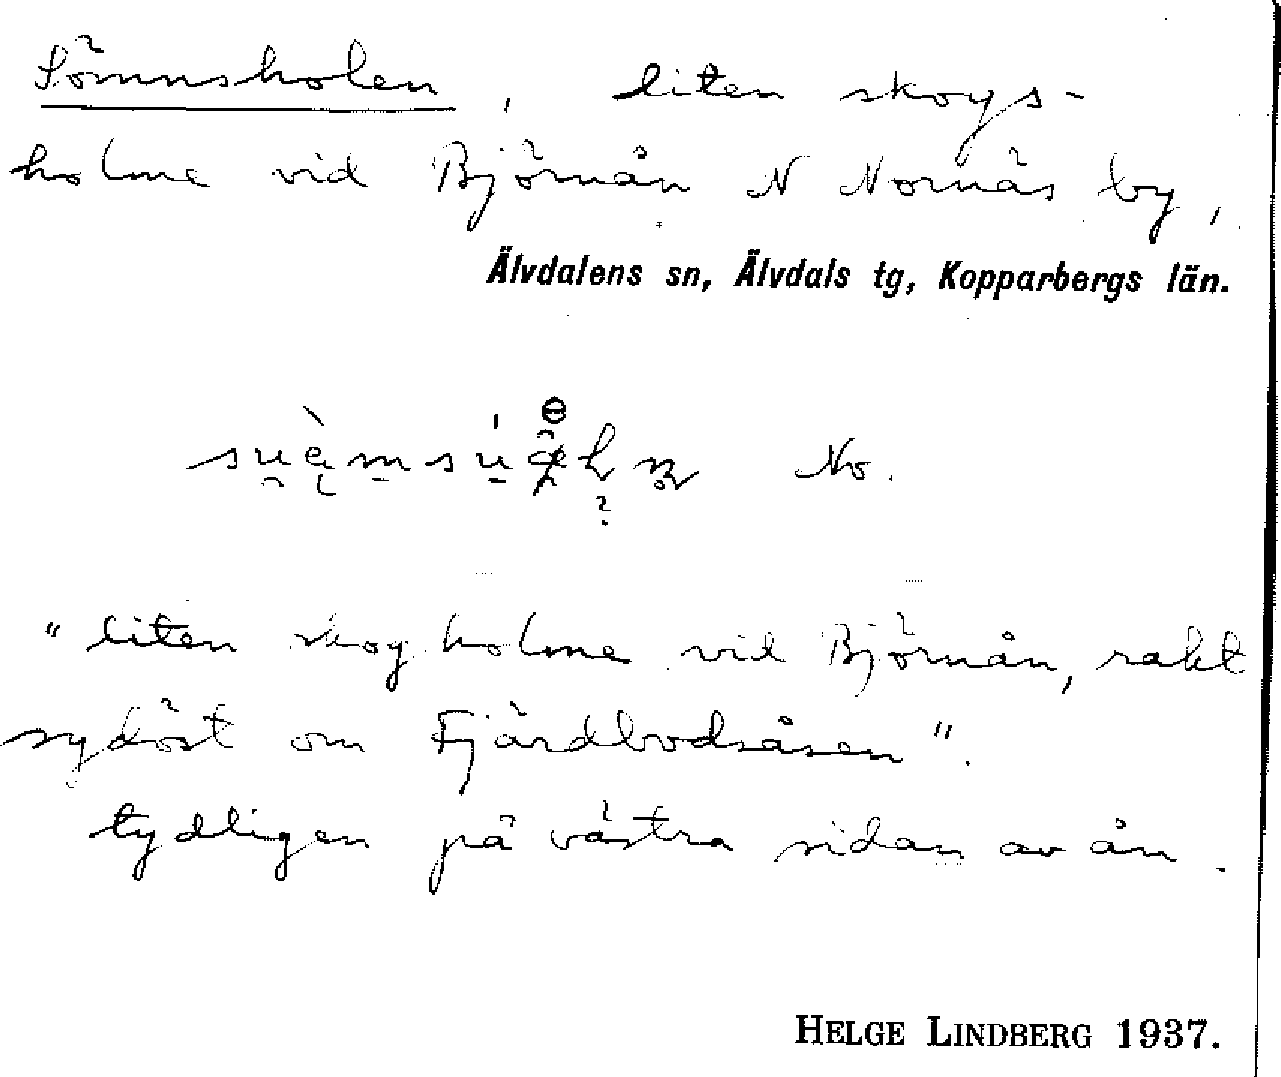 Sömnsholen, liten skogs-
holme vid Björnån N Nornäs by,
Älvdalens sn, Älvdals tg, Kopparbergs län.
No.
"liten skogholme vid Björnån, rakt
sydöst om Fjärdbodåsen".
tydligen på västra sidan av ån.
HELGE LINDBERG 1937.